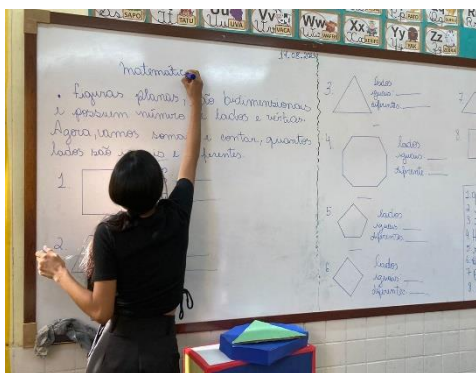 SAPO
TATU
Uu UVA
Vv VACA
Ww
Xx
Yy
Zz
Matemática
• Figuras planas são bidimensionais
e possuem número de lados e vértices.
Agora, vamos somar e contar, quantos
lados são e diferentes.
1.
2.
3. lados
iguais ___
diferentes ___
4. lados
iguais ___
diferente ___
5 lados
iguais ___
diferentes ___
6 lados
iguais ___
diferentes ___